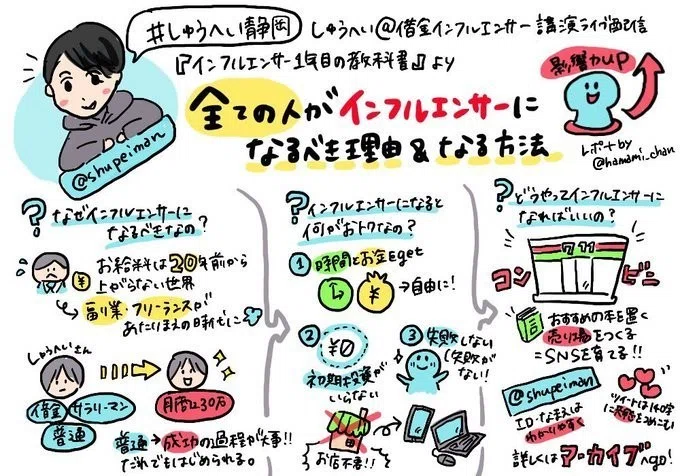 #しゅうへい静岡
しゅうへい@借金インフルエンサー 講演ライブ配信
『インフルエンサー1年目の教科書』より
全ての人がインフルエンサーに
なるべき理由&なる方法
影響力UP
レポートby
@hanami_chan
@shupeiman
?なぜインフルエンサーに
なるべきなの?
お給料は20年前から
上がらない世界
副業・フリーランスが
あたりまえの時代に
しゅうへいさん
借金 サラリーマン
普通
月商230万
普通→成功の過程が大事!!
だれでもはじめられる。
?インフルエンサーになると
何がおトクなの?
① 時間とお金をget
¥
→自由に!
②
¥0
初期投資が
いらない
お店不要!!
③ 失敗しない
(失敗が
ない!)
?どうやってインフルエンサーに
なればいいの?
7 11
コンビニ
おすすめの本を置く
売り場をつくる
=SNSを育てる!!
@shupeiman
ID・なまえは
わかりやすく
ツイートは140字に
をこめる
詳しくはアーカイブへgo!